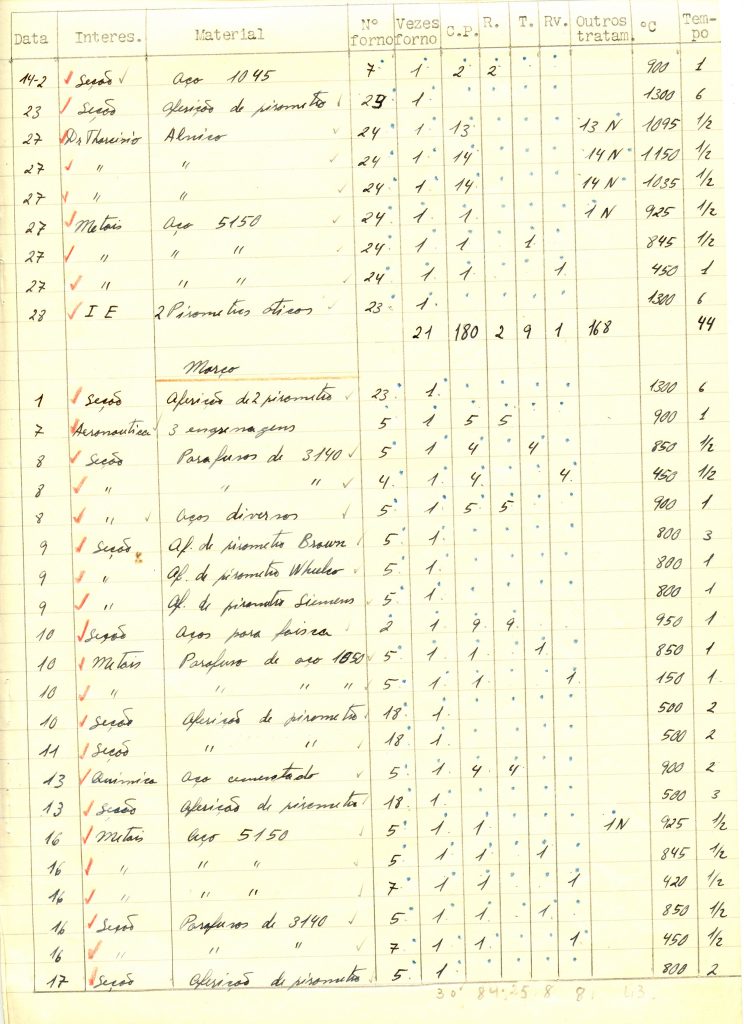 Data Interes. Material Nº forno Vezes forno C.P. R. T. RV. Outros tratam. ºC Tempo
14-2 Seção Aço 1045 7 1 2 2 900 1
23 Seção Aferição de pirometro 29 1 1300 6
27 Dr Tharcisio Alnico 24 1 13 13 N 1095 1/2
27 " " 24 1 14 14 N 1150 1/2
27 " " 24 1 14 14 N 1035 1/2
27 Metais Aço 5150 24 1 1 1 N 925 1/2
27 " " " 24 1 1 1 845 1/2
27 " " " 24 1 1 1 450 1
28 I E 2 Pirometros óticos 23 1 1300 6
21 180 2 9 1 168 44
Março
1 Seção Aferição de 2 pirometro 23 1 1300 6
7 Aeronautica 3 engrenagens 5 1 5 5 900 1
8 Seção Parafusos de 3140 5 1 4 4 850 1/2
8 " " " 4 1 4 4 450 1/2
8 " Aços diversos 5 1 5 5 900 1
9 Seção Af. de pirometro Brown 5 1 800 3
9 " Af. de pirometro Wheelco 5 1 800 1
9 " Af. de pirometro Siemens 5 1 800 1
10 Seção Aços para faisca 2 1 9 9 950 1
10 Metais Parafuso de aço 1050 5 1 1 1 850 1
10 " " " " 5 1 1 1 150 1
10 Seção Aferição de pirometro 18 1 500 2
11 Seção " " 18 1 500 2
13 Quimica Aço cementado 5 1 4 4 900 2
13 Seção Aferição de pirometro 18 1 500 3
16 Metais Aço 5150 5 1 1 1 N 925 1/2
16 " " " 5 1 1 1 845 1/2
16 " " " 7 1 1 1 420 1/2
16 Seção Parafusos de 3140 5 1 1 1 850 1/2
16 " " " 7 1 1 1 450 1/2
17 Seção Aferição de pirometro 5 1 800 2
30 84 25 8 8